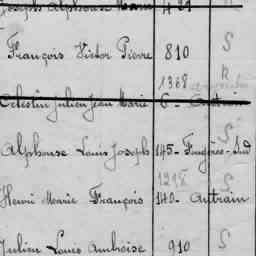 Joseph Alphonse Marie 421
François Victor Pierre 810 S
1368 R
Célestin Julien Jean Marie 6
S
Alphonse Louis Joseph 145 - Fougères - Sud
1298 S
Henri Marie François 140 - Antrain
Julien Louis Ambroise 910 S